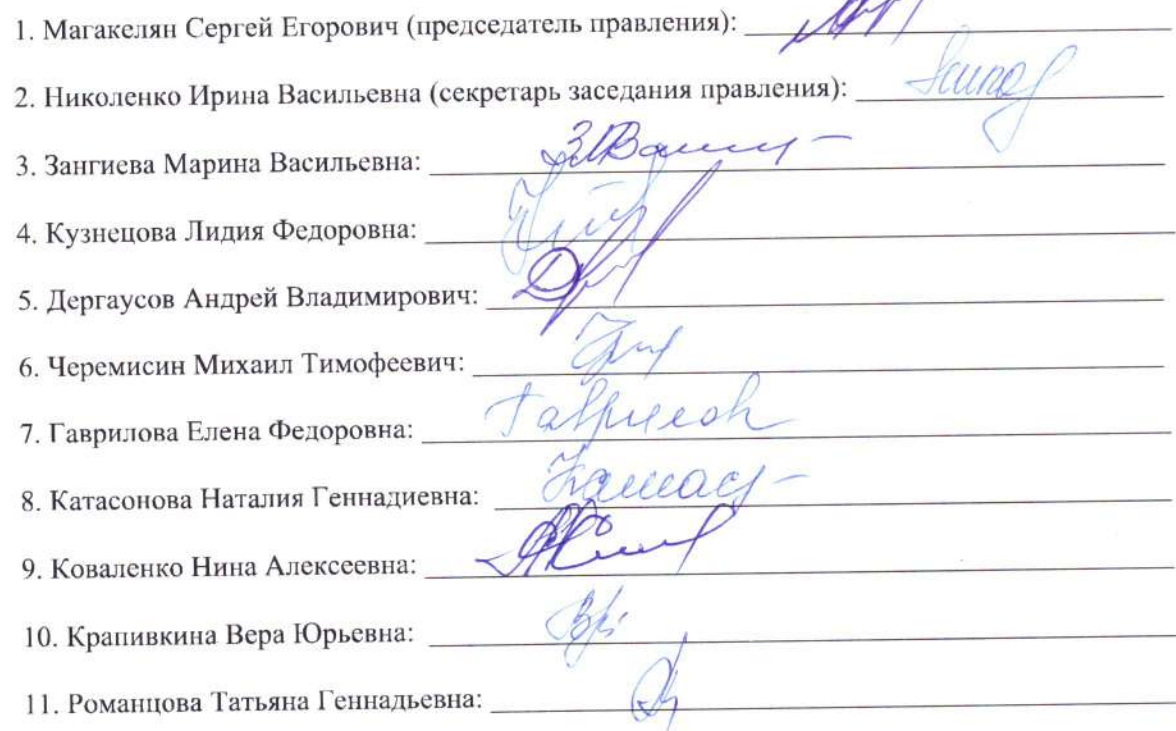 1. Магакелян Сергей Егорович (председатель правления):
2. Николенко Ирина Васильевна (секретарь заседания правления):
3. Зангиева Марина Васильевна:
4. Кузнецова Лидия Федоровна:
5. Дергаусов Андрей Владимирович:
6. Черемисин Михаил Тимофеевич:
7. Гаврилова Елена Федоровна:
8. Катасонова Наталия Геннадиевна:
9. Коваленко Нина Алексеевна:
10. Крапивкина Вера Юрьевна:
11. Романцова Татьяна Геннадьевна: